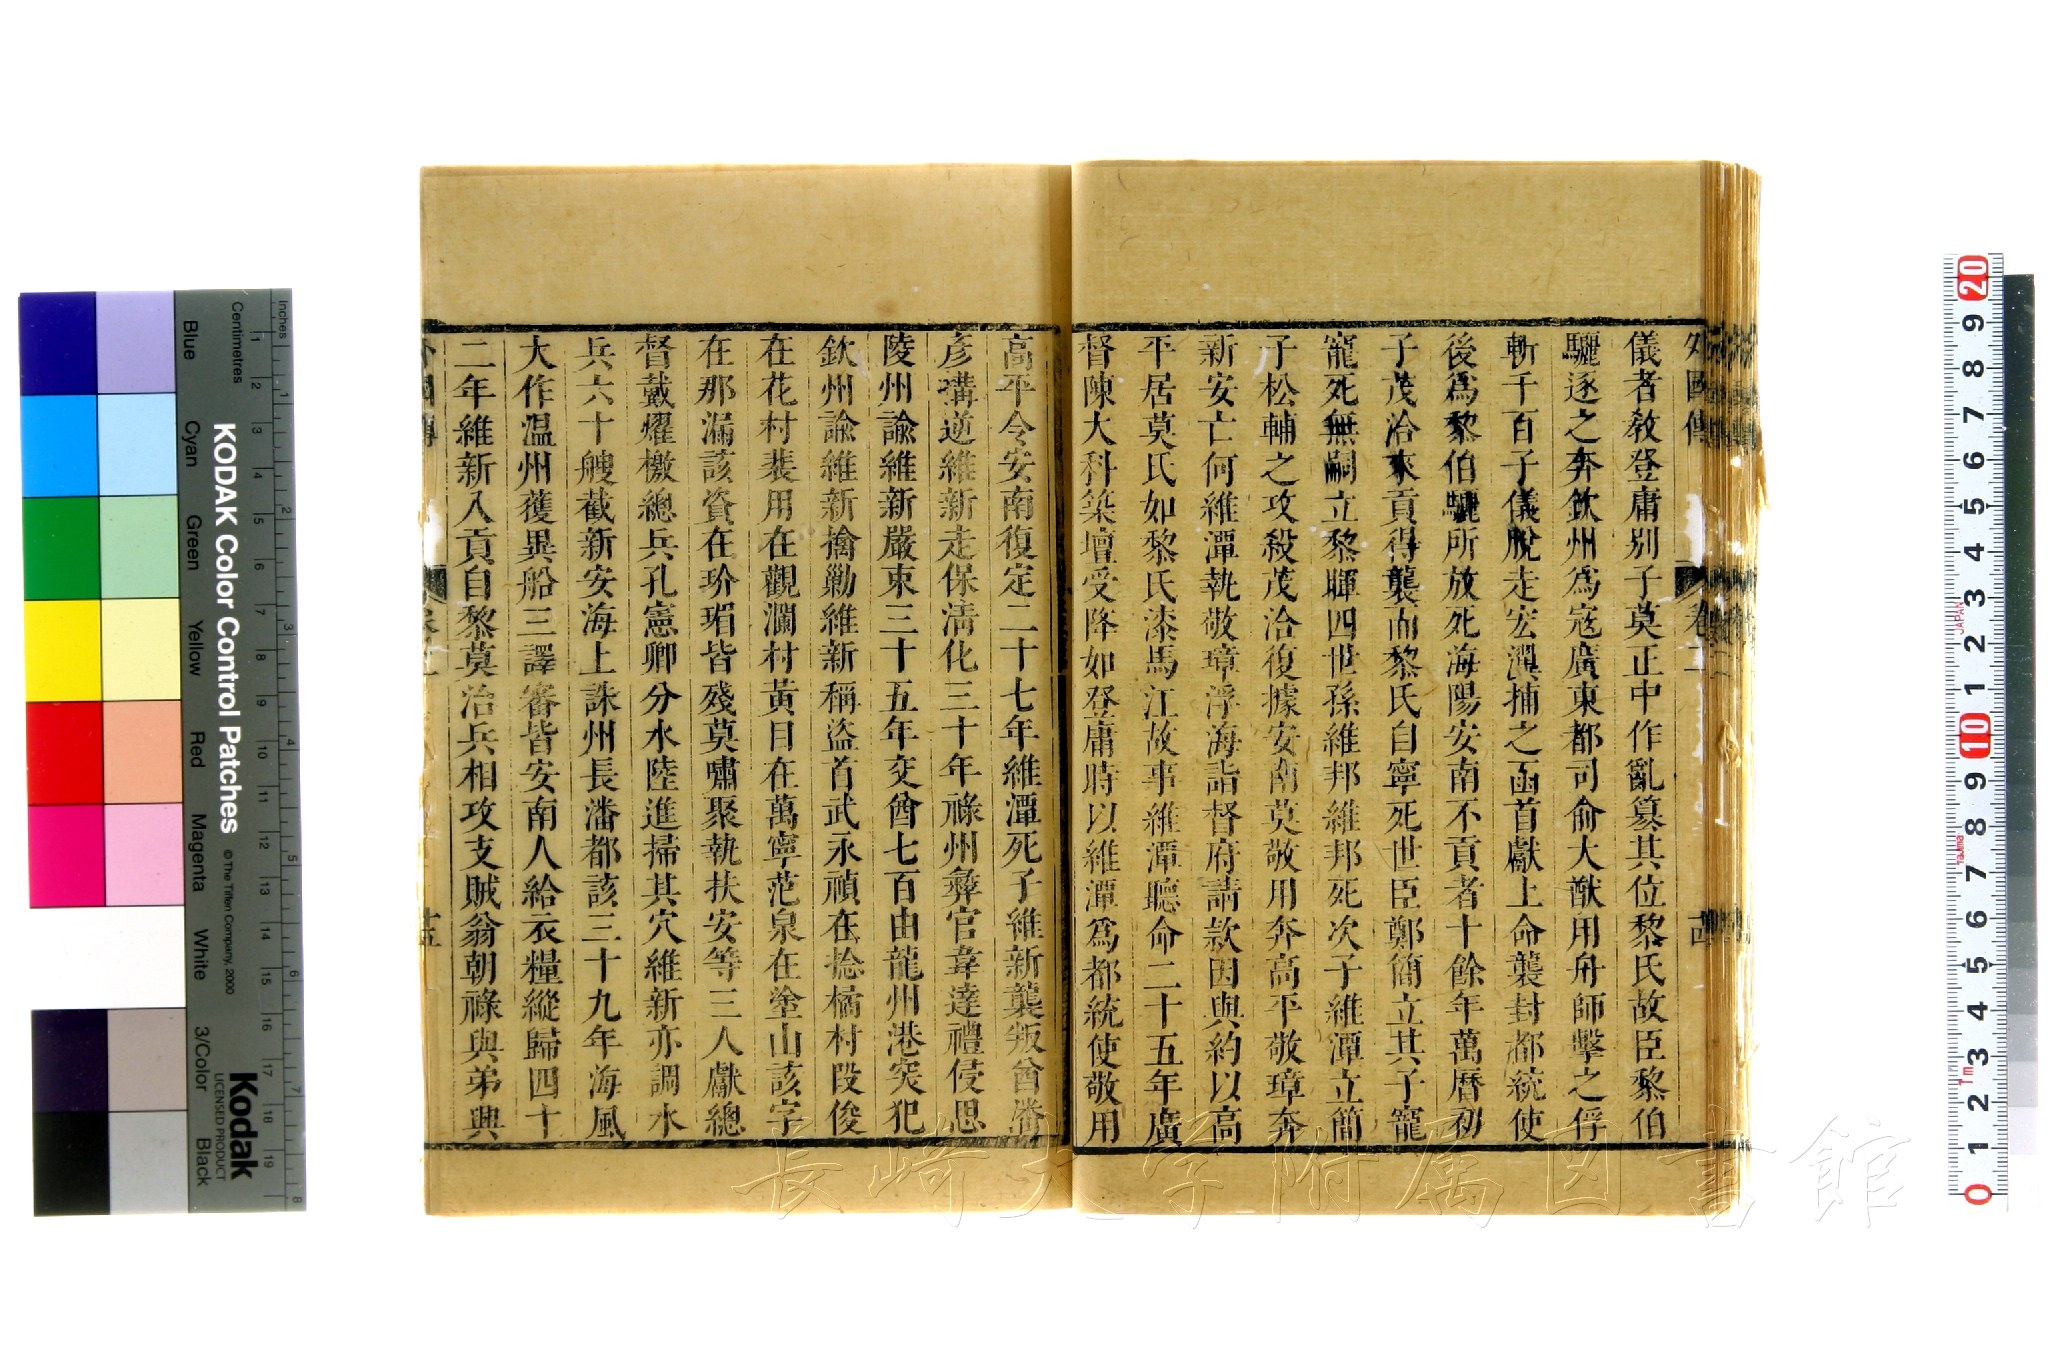 外國傳 卷二 古
儀者敎登庸别子莫正中作亂簒其位黎氏故臣黎伯
驪逐之奔欽州爲寇廣東都司俞大猷用舟師擊之俘
斬千百子儀脫走宏瀷捕之函首獻上命襲封都統使
後爲黎伯驪所放死海陽安南不貢者十餘年萬曆初
子茂洽來貢得襲而黎氏自寧死世臣鄭簡立其子寵
寵死無嗣立黎暉四世孫維邦維邦死次子維潭立簡
子松輔之攻殺茂洽復據安南莫敬用奔高平敬璋奔
新安亡何維潭執敬璋浮海詣督府請款因與約以高
平居莫氏如黎氏漆馬江故事維潭聽命二十五年廣
督陳大科築壇受降如登庸時以維潭爲都統使敬用
高平令安南復定二十七年維潭死子維新襲叛酋潘
彦搆逆維新走保淸化三十年祿州彝官韋達禮侵思
陵州諭維新嚴束三十五年交酋七百由龍州港突犯
欽州諭維新擒勦維新稱盜首武永禎在捻橘村段俊
在花村裴用在觀瀾村黃目在萬寧范泉在塗山該字
在那漏該資在玠瑁皆殘莫嘯聚執扶安等三人獻總
督戴燿檄總兵孔憲卿分水陸進掃其穴維新亦調水
兵六十艘截新安海上誅州長潘都該三十九年海風
大作温州獲異船三譯審皆安南人給衣糧縱歸四十
二年維新入貢自黎莫治兵相攻支賊翁朝祿與弟興
十五
KODAK Color Control Patches
© The Tiffen Company, 2000
Kodak
LICENSED PRODUCT
Inches
Centimetres
Blue
Cyan
Green
Yellow
Red
Magenta
White
3/Color
Black
長崎大学附属図書館